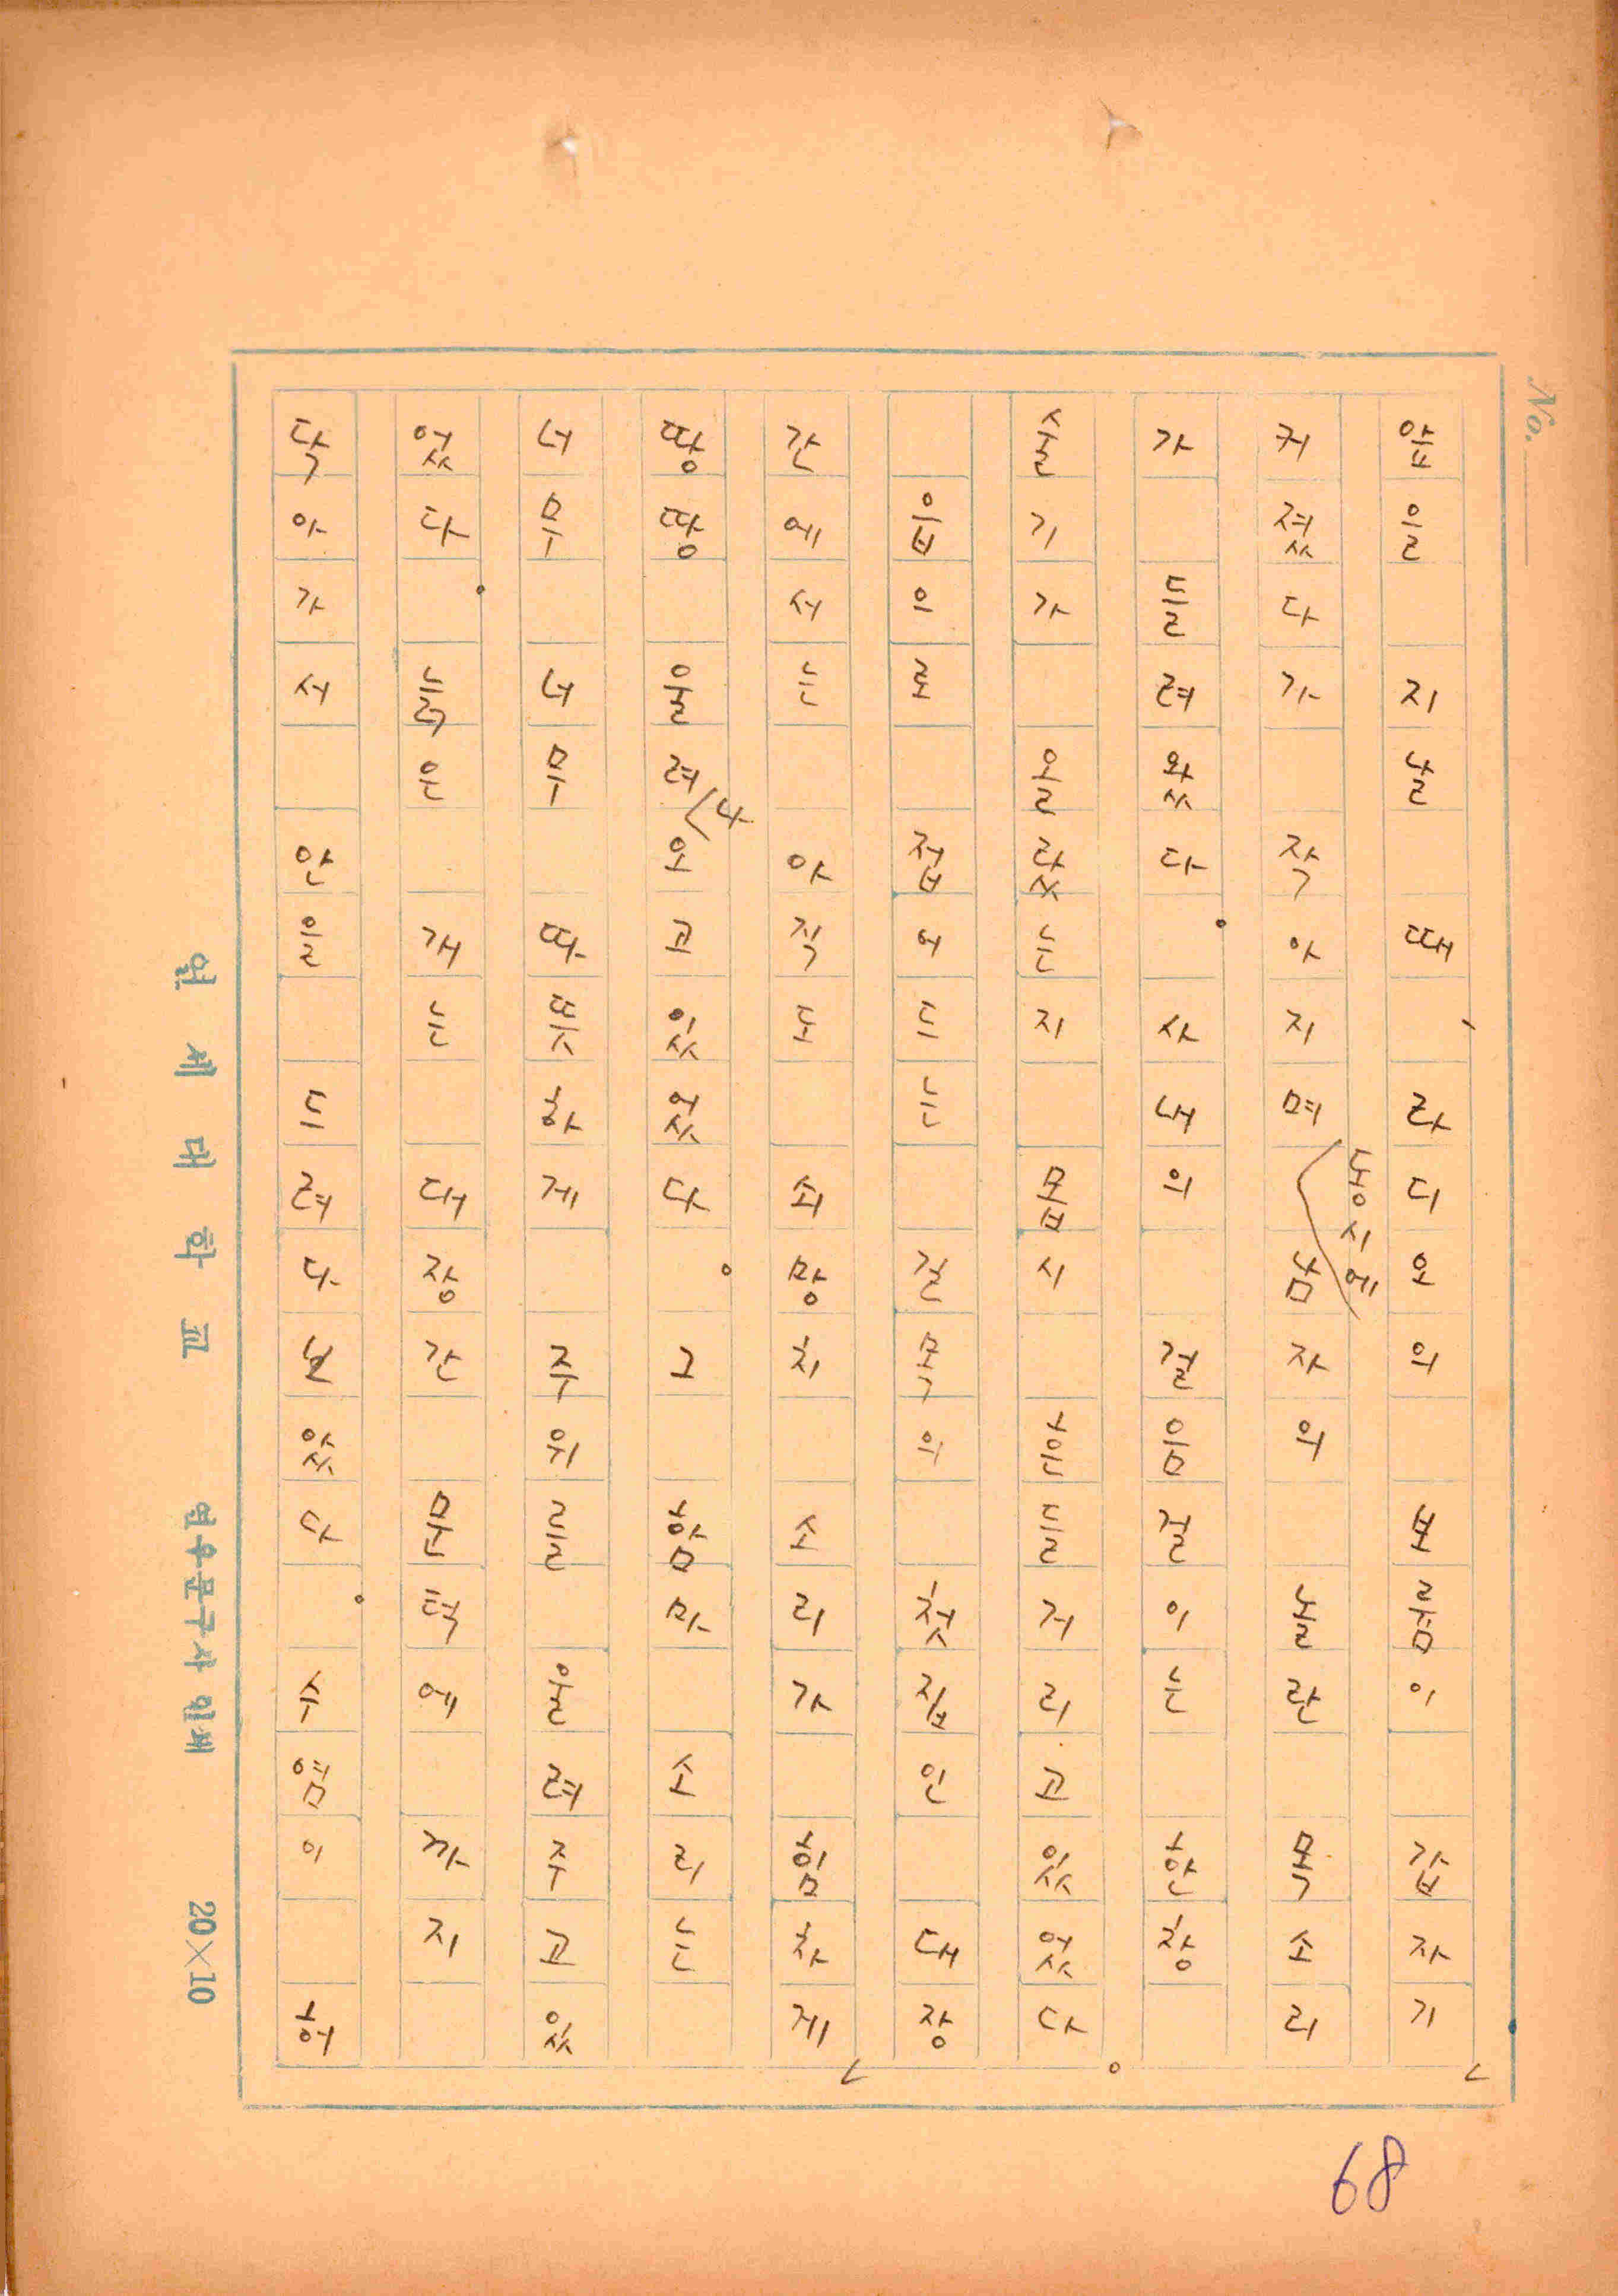 No.
앞을 지날 때, 라디오의 보륨이 갑자기
커졌다가 작아지며 동시에 남자의 놀란 목소리
가 들려왔다. 사내의 걸음걸이는 한창
술기가 올랐는지 몹시 흔들거리고 있었다.
읍으로 접어드는 건목의 첫집인 대장
간에서는 아직도 쇠망치 소리가 힘차게
땅땅 울려 나오고 있었다. 그 함마 소리는
너무 너무 따뜻하게 주위를 울려주고 있
었다. 늙은 개는 대장간 문턱에 까지
닥아가서 안을 드려다 보았다. 수염이 허
연세대학교 연우문구사 인쇄 20×10
68